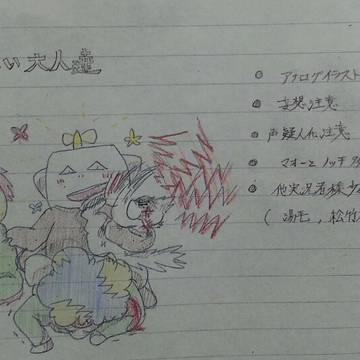 い大人達
• アナログイラスト
• 妄想注意
• 声疑人化注意
• マオーとノッチ
• 他実況者様
( 湯毛, 松竹